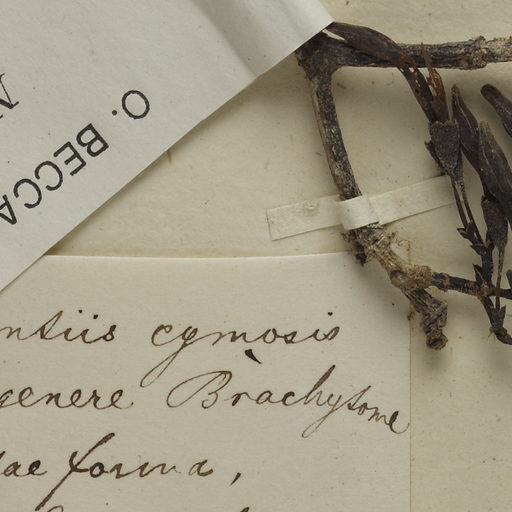 O. BECCA
N
ntiis cymosis
genere Brachytome
ae forma,